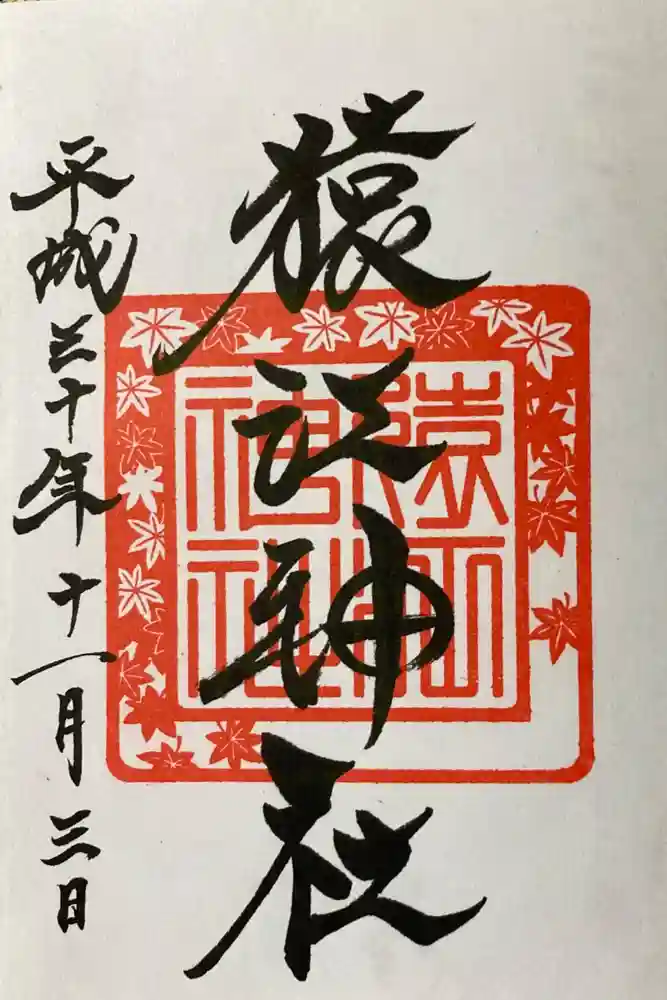 猿江神社
平成三十年十一月三日
猿江
神社